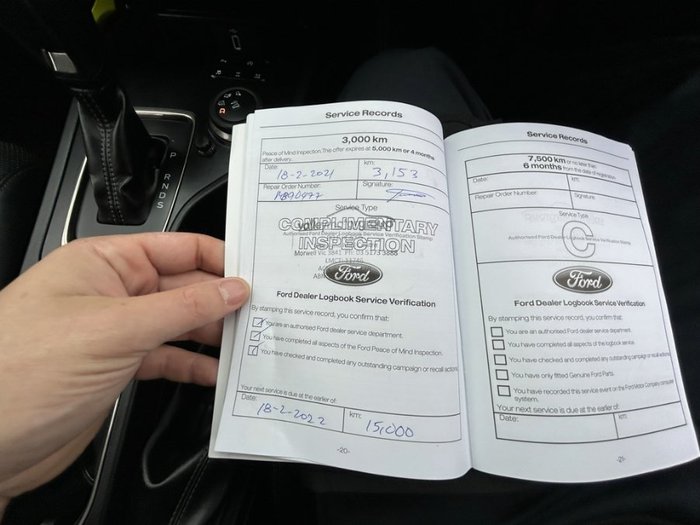 Service Records
3,000 km
Peace of Mind Inspection. This offer expires at 5,000 km or 4 months
after delivery.
Date: 18-2-2021
km: 3,153
Repair Order Number:
Signature:
Service Type
COMPLIMENTARY
INSPECTION
Authorised Ford Dealer Logbook Service Verification Stamp
Morwell Vic 3841 Ph: 03 5173 3888
Ford
Ford Dealer Logbook Service Verification
By stamping this service record, you confirm that:
You are an authorised Ford dealer service department.
You have completed all aspects of the Ford Peace of Mind Inspection.
You have checked and completed any outstanding campaign or recall actions.
Your next service is due at the earlier of:
Date: 18-2-2022
km: 15,000
-20-
Service Records
7,500 km or no later than
6 months from the date of registration
Date:
km:
Repair Order Number:
Signature
Service Type
C
Authorised Ford Dealer Logbook Service Verification Stamp
Ford
Ford Dealer Logbook Service Verification
By stamping this service record, you confirm that:
You are an authorised Ford dealer service department.
You have completed all aspects of the logbook service.
You have checked and completed any outstanding campaign or recall actions.
You have only fitted Genuine Ford Parts.
You have recorded this service event on the Ford Motor Company computer
system.
Your next service is due at the earlier of:
Date:
km:
-21-
P
R
N
D
S